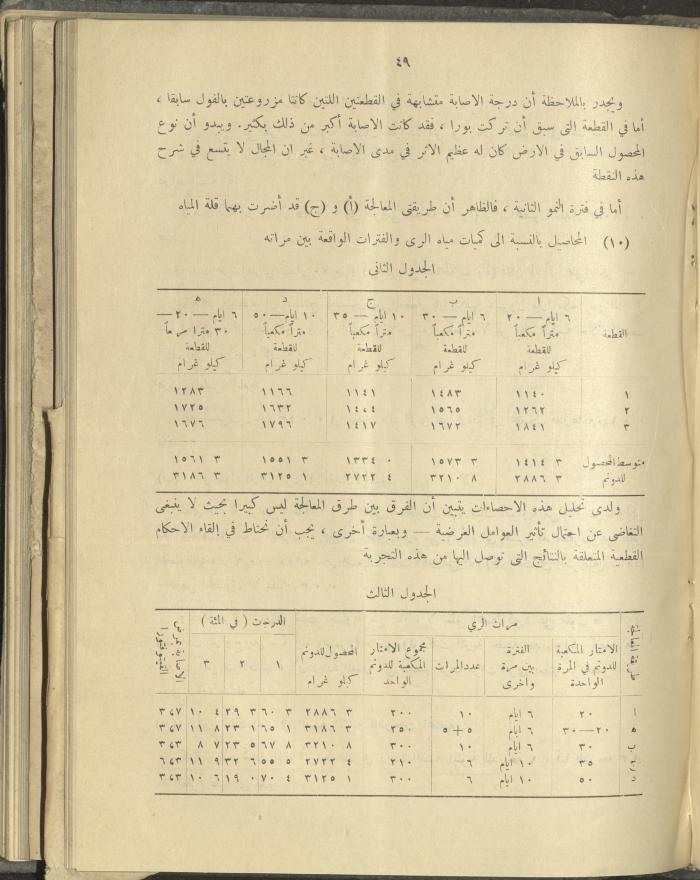 ٤٩
ويجدر بالملاحظة أن درجة الاصابة متشابهة في القطعتين اللتين كانتا مزروعتين بالفول سابقا ،
أما في القطعة التي سبق أن تركت بورا ، فقد كانت الاصابة أكبر من ذلك بكثير. ويبدو أن نوع
المحصول السابق في الارض كان له عظيم الاثر في مدى الاصابة ، غير ان المجال لا يتسع في شرح
هذه النقطة
أما في فترة النمو الثانية ، فالظاهر أن طريقتي المعالجة (أ) و (ج) قد أضرت بهما قلة المياه
(١٠) المحاصيل بالنسبة الى كميات مياه الري والفترات الواقعة بين مراته
الجدول الثاني
القطعة ا ب ج د ه
٦ ايام — ٢٠ ٦ ايام — ٣٠ ١٠ ايام — ٣٥ ١٠ ايام — ٥٠ ٦ ايام — ٢٠ —
متراً مكعباً متراً مكعباً متراً مكعباً متراً مكعباً ٣٠ مترا مربعاً
للقطعة للقطعة للقطعة للقطعة للقطعة
كيلو غرام كيلو غرام كيلو غرام كيلو غرام كيلو غرام
١ ١١٤٠ ١٤٨٣ ١١٤١ ١١٦٦ ١٢٨٣
٢ ١٢٦٢ ١٥٦٥ ١٤٠٤ ١٦٣٢ ١٧٢٥
٣ ١٨٤١ ١٦٧٢ ١٤١٧ ١٧٩٦ ١٦٧٦
متوسط المحصول ٣ ١٤١٤ ٣ ١٥٧٣ ٠ ١٣٣٤ ٣ ١٥٥١ ٣ ١٥٦١
للدونم ٣ ٢٨٨٦ ٨ ٣٢١٠ ٤ ٢٧٢٢ ١ ٣١٢٥ ٣ ٣١٨٦
ولدى تحليل هذه الاحصاءات يتبين أن الفرق بين طرق المعالجة ليس كبيرا بحيث لا ينبغي
التغاضي عن احتمال تأثير العوامل العرضية — وبعبارة أخرى ، يجب أن نحتاط في إلقاء الاحكام
القطعية المتعلقة بالنتائج التي توصل اليها من هذه التجربة
الجدول الثالث
طريقة المعالجة مرات الري الدرجات ( في المئة )
الامتار المكعبة للدونم في المرة الواحدة
الفترة بين مرة واخرى
عدد المرات
مجموع الامتار المكعبة للدونم الواحد
المحصول للدونم كيلو غرام
١ ٢ ٣
الاصابة بمرض الفيتوفتورا
ا ٢٠ ٦ ايام ١٠ ٢٠٠ ٣ ٢٨٨٦
ه ٢٠—٣٠ ٦ ايام ٥+٥ ٢٥٠ ٣ ٣١٨٦
ب ٣٠ ٦ ايام ١٠ ٣٠٠ ٨ ٣٢١٠
ج ٣٥ ١٠ ايام ٦ ٢١٠ ٤ ٢٧٢٢
د ٥٠ ١٠ ايام ٦ ٣٠٠ ١ ٣١٢٥